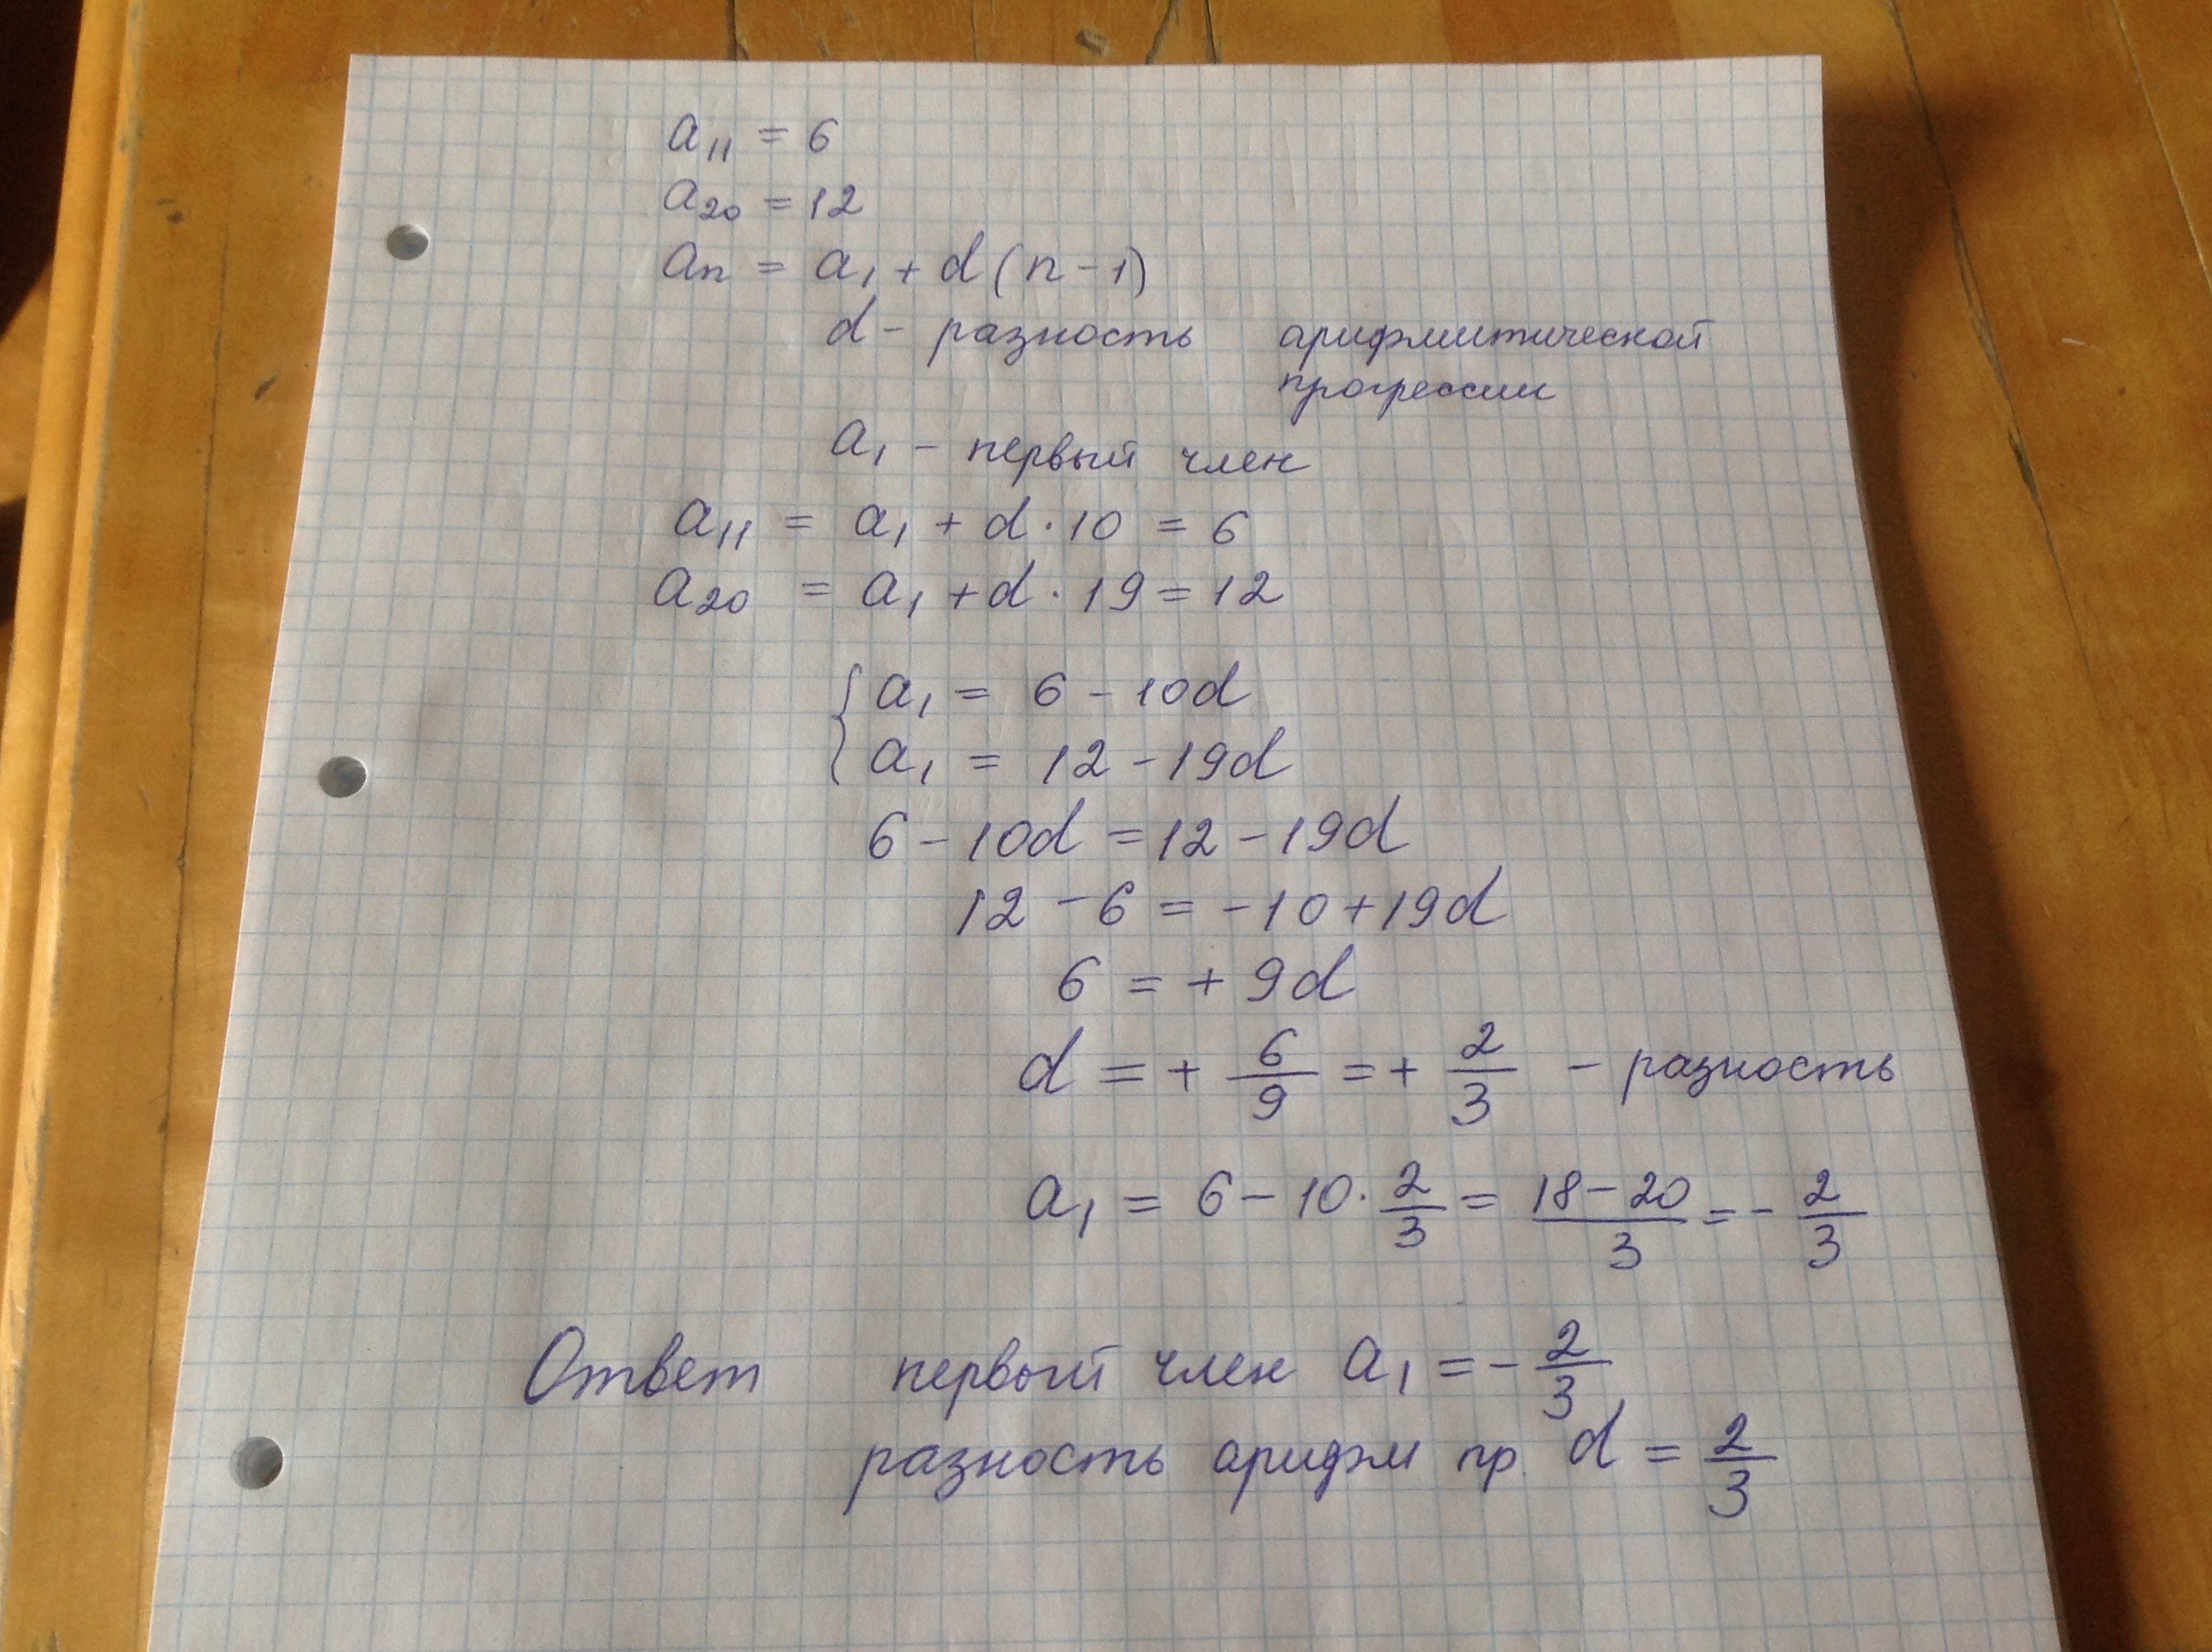 a₁₁ = 6
a₂₀ = 12
aₙ = a₁ + d(n-1)
d - разность арифмитической
прогрессии
a₁ - первый член
a₁₁ = a₁ + d·10 = 6
a₂₀ = a₁ + d·19 = 12
{ a₁ = 6 - 10d
a₁ = 12 - 19d
6 - 10d = 12 - 19d
12 - 6 = -10 + 19d
6 = + 9d
d = + 6/9 = + 2/3 - разность
a₁ = 6 - 10·2/3 = (18-20)/3 = - 2/3
Ответ первый член a₁ = - 2/3
разность арифм пр. d = 2/3